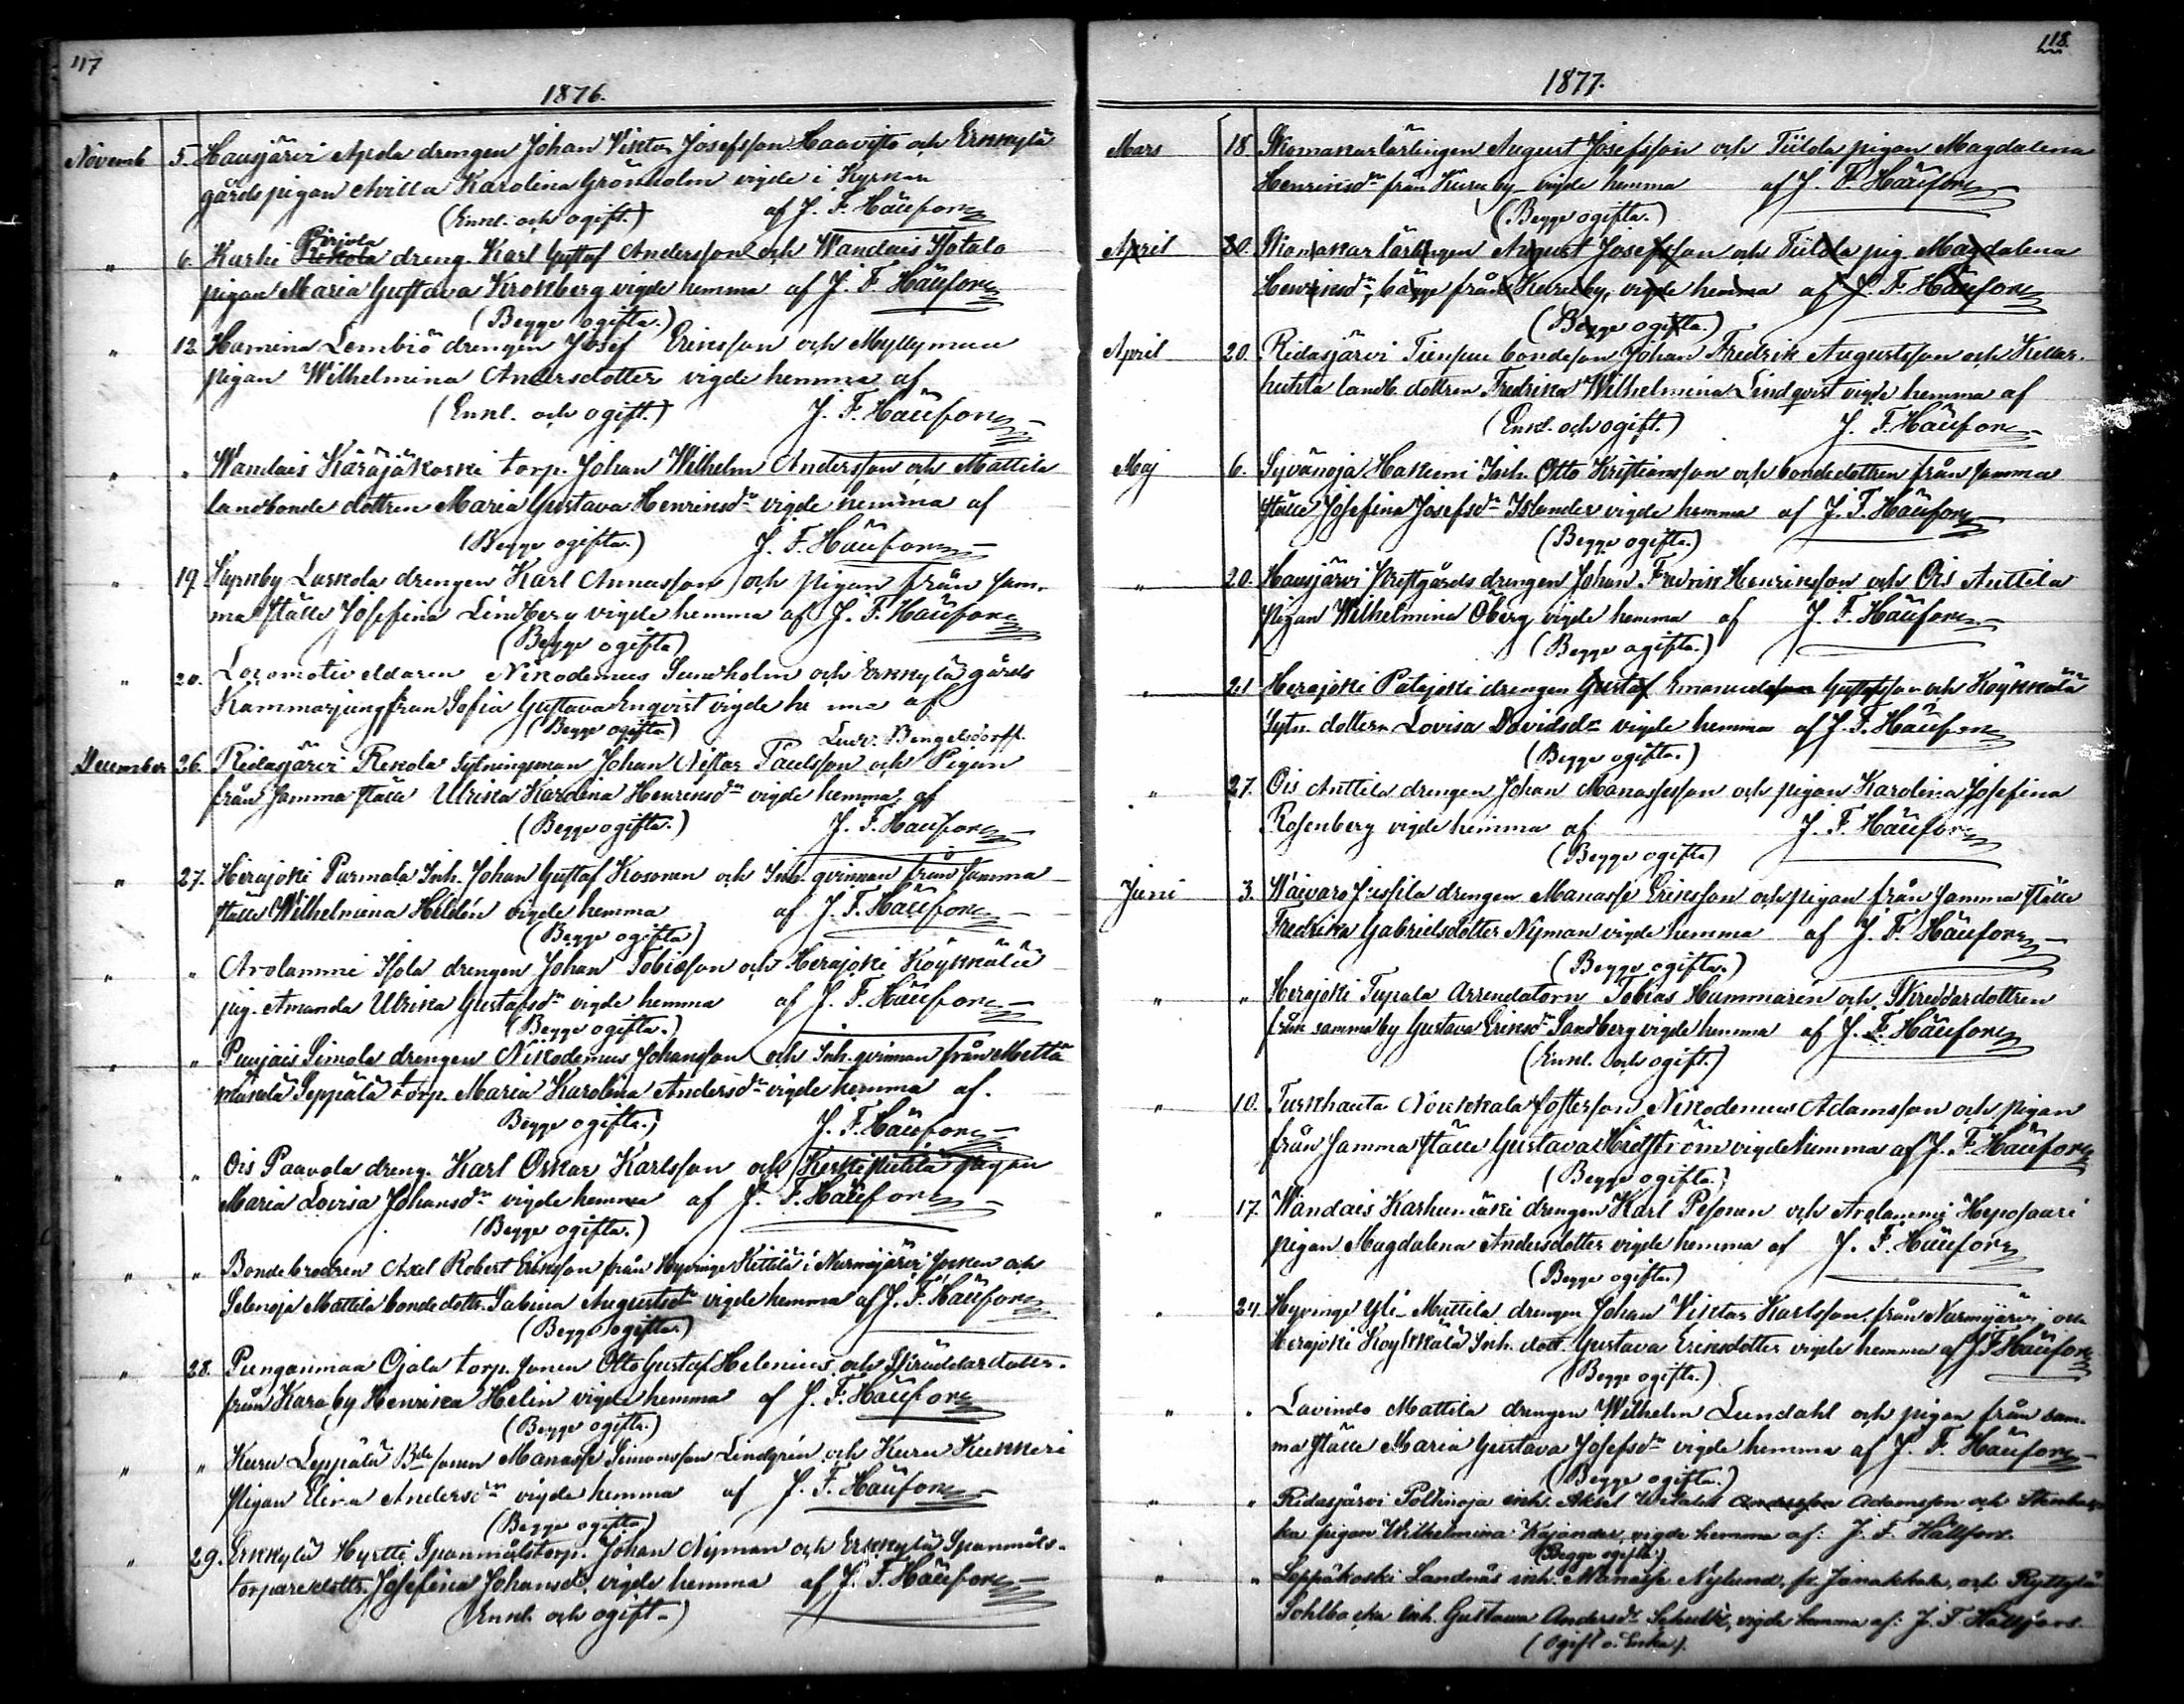 117
1876.
Novemb. 5. Hausjärvi drengen Johan Viktor Josefsson Haavisto och Erkkylä
gårds pigan Karolina Grönholm vigde i Kyrkan
(Enkl. och ogift.) af J. F. Hällfors
" 6. Kurki Pirjola dreng. Karl Gustaf Andersson och Wandais Hotala
pigan Maria Gustava Kronberg vigde hemma af J. F. Hällfors
(Begge ogifta.)
" 12. Hamina Lembiö drengen Josef Eriksson och Myllymaa
pigan Wilhelmina Andersdotter vigde hemma af
(Enkl. och ogift.) J. F. Hällfors
" " Wandais Käräjäkoski torp. Johan Wilhelm Andersson och Mattila
landbonde dottren Maria Gustava Henriksdr vigde hemma af
(Begge ogifta.) J. F. Hällfors
" 19. Kyrkby Laskola drengen Karl Annasson och pigan från sam-
ma ställe Josefina Lindberg vigde hemma af J. F. Hällfors
(Begge ogifta)
" 20. Locomotiv eldaren Nikodemus Sundholm och Erkkylä gårds
Kammarjungfrun Sofia Gustava Enqvist vigde hemma af
(Begge ogifta) Ludv. Bengelsdorff.
December 26. Ridasjärvi Rekola Sytningsman Johan Nestor Paulsson och Pigan
från samma ställe Ulrika Karolina Henriksdr vigde hemma af
(Begge ogifta.) J. F. Hällfors
" 27. Herajoki Parmala Inh. Johan Gustaf Kosonen och Inh. qvinnan från samma
ställe Wilhelmina Heldén vigde hemma af J. F. Hällfors
(Begge ogifta)
" " Arolammi Isola drengen Johan Tobiasson och Herajoki Köykkälä
pig. Amanda Ulrika Gustafsdr vigde hemma af J. F. Hällfors
(Begge ogifta.)
" " Puujais Simola drengen Nikodemus Johansson och Inh. qvinnan från Mettä
Seppälä torp. Maria Karolina Andersdr vigde hemma af.
Begge ogifta.) J. F. Hällfors
" " Ois Paavola dreng. Karl Oskar Karlsson och pigan
Maria Lovisa Johansdr vigde hemma af J. F. Hällfors
(Begge ogifta.)
" " Bondebrodren Axel Robert Eriksson från Hyvinge Kittilä i Nurmijärvi Socken och
Selenoja Mattila bonde dottr. Sabina Augustsdr vigde hemma af J. F. Hällfors
(Begge ogifta)
" 28. Punganmaa Ojala torp. sonen Otto Gustaf Helenius och Skräddardottr.
från Karaby Henrika Helin vigde hemma af J. F. Hällfors
(Begge ogifta.)
" " Kuru Leppälä Bde sonen Manasse Simonsson Lindgrén och Kuru Kukkeri
pigan Elina Andersdr vigde hemma af J. F. Hällfors
(Begge ogifta)
" 29. Erkkylä Hyrtti Spanmålstorp. Johan Nyman och Erkkylä Spanmåls-
torparedottr. Josefina Johansdr vigde hemma af J. F. Hällfors
(Enkl. och ogift.)
118.
1877.
Mars 18. Skomakarlärlingen August Josefsson och Tiilola pigan Magdalena
Henriksdr från Kuruby vigde hemma af J. F. Hällfors
(Begge ogifta.)
April 20. Skomakarlärlingen August Josefsson och Tiilola pig. Magdalena
Henriksdr, bägge från Kuruby, vigde hemma af J. F. Hällfors
(Begge ogifta.)
April 20. Ridasjärvi Tienpuu bondeson Johan Fredrik Augustsson och Keller-
huhta landb. dottren Fredrika Wilhelmina Lindqvist vigde hemma af
(Enkl. och ogift.) J. F. Hällfors
Maj 6. Syvänoja Hakuni Inh. Otto Kristiansson och bondedottren från samma
ställe Josefina Josefsdr Islander vigde hemma af J. F. Hällfors
(Begge ogifta.)
" 20. Hausjärvi Prestgårds drengen Johan Fredrik Henriksson och Ois Anttila
Pigan Wilhelmina Öberg vigde hemma af J. F. Hällfors
(Begge ogifta.)
" 21. Herajoki Patajoki drengen Gustaf Emanuelsson Gustafsson och Köykkälä
Sytn. dottern Lovisa Davidsdr vigde hemma af J. F. Hällfors
(Begge ogifta.)
" 27. Ois Anttila drengen Johan Manassesson och pigan Karolina Josefina
Rosenberg vigde hemma af J. F. Hällfors
(Begge ogifta)
Juni 3. Waivaro Jussila drengen Manasse Eriksson och pigan från samma ställe
Fredrika Gabrielsdotter Nyman vigde hemma af J. F. Hällfors
(Begge ogifta.)
" " Herajoki Tupala Arrendatorn Tobias Hammarén och Skreddardottren
från samma by Gustava Eriksdr Sandberg vigde hemma af J. F. Hällfors
(Enkl. och ogift.)
" 10. Turkhauta Noukkala fosterson Nikodemus Adamsson och pigan
från samma ställe Gustava Hidström vigde hemma af J. F. Hällfors
(Begge ogifta.)
" 17. Wandais Karhumäki drengen Karl Pesonen och Arolammi Heposaari
pigan Magdalena Andersdotter vigde hemma af J. F. Hällfors
(Begge ogifta.)
" 24. Hyvinge Yli-Mattila drengen Johan Viktor Karlsson från Nurmijärvi och
Herajoki Köykkälä Inh. dott. Gustava Eriksdotter vigde hemma af J. F. Hällfors
(Begge ogifta.)
" " Lavindo Mattila drengen Wilhelm Lundahl och pigan från sam-
ma ställe Maria Gustava Josefsdr vigde hemma af J. F. Hällfors
(Begge ogifta.)
" " Ridasjärvi Poltinoja inh. Aksel Witalis Andersson Adamsson och
pigan Wilhelmina Kajander, vigde hemma af: J. F. Hällfors.
(Begge ogifta.)
" " Leppäkoski Landnäs inh. Manasse Nylund, fr. Janakkala, och Ryttylä
Sohlbacka Inh. Gustava Andersdr Schultz, vigde hemma af: J. F. Hällfors.
(Ogift o. Enka).